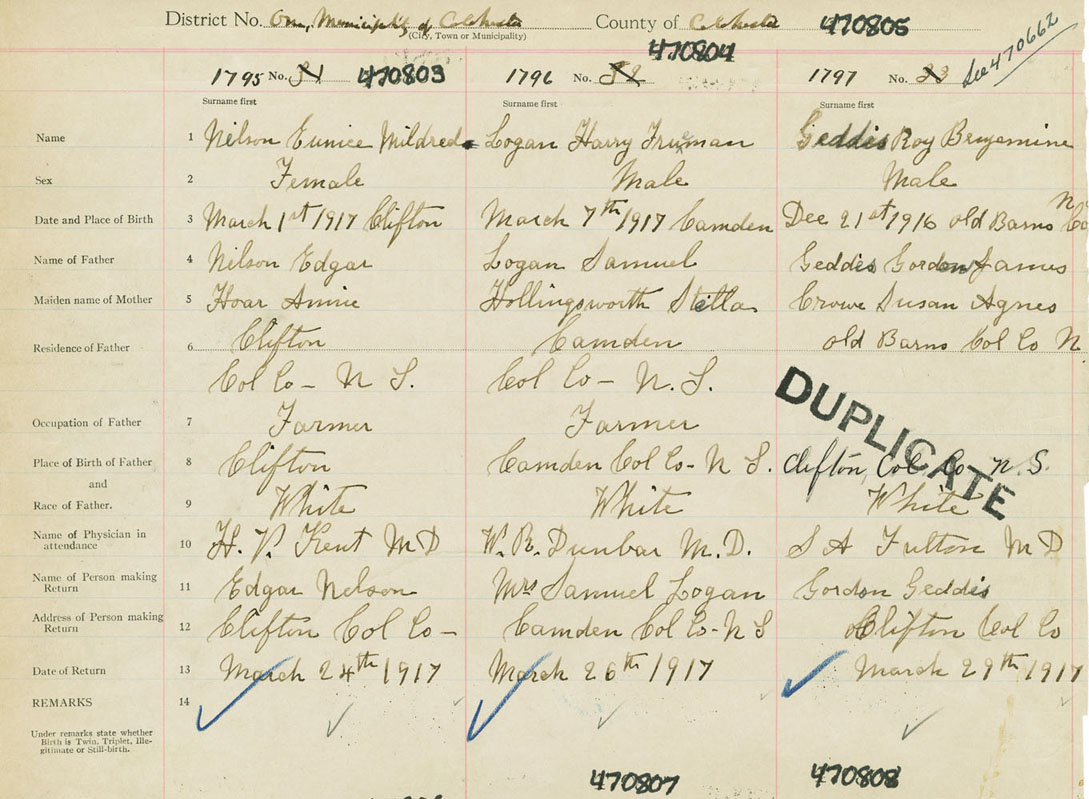 District No. One, Municipality of Colchester County of Colchester 470805
(City, Town or Municipality)
470804
See 470662
1795 No. 31 470803 1796 No. 32 1797 No. 33
Surname first Surname first Surname first
Name 1 Nilson Eunice Mildred Logan Harry Freeman Geddis Roy Benjemine
Sex 2 Female Male Male
Date and Place of Birth 3 March 1st 1917 Clifton March 7th 1917 Camden Dec 21st 1916 old Barns
Name of Father 4 Nilson Edgar Logan Samuel Geddis Gordon James
Maiden name of Mother 5 Hoar Annie Hollingsworth Stella Crowe Susan Agnes
Residence of Father 6 Clifton Camden old Barns Col Co N
Col Co - N S. Col Co - N.S.
DUPLICATE
Occupation of Father 7 Farmer Farmer
Place of Birth of Father 8 Clifton Camden Col Co - N S. Clifton, Col Co N.S.
and
Race of Father. 9 White White White
Name of Physician in attendance 10 H. V. Kent M D W. R. Dunbar M.D. S A Fulton M D
Name of Person making Return 11 Edgar Nelson Mrs Samuel Logan Gordon Geddis
Address of Person making Return 12 Clifton Col Co - Camden Col Co - N S Clifton Col Co
Date of Return 13 March 24th 1917 March 26th 1917 March 29th 1917
REMARKS 14
Under remarks state whether
Birth is Twin, Triplet, Ille-
gitimate or Still-birth.
470807 470808